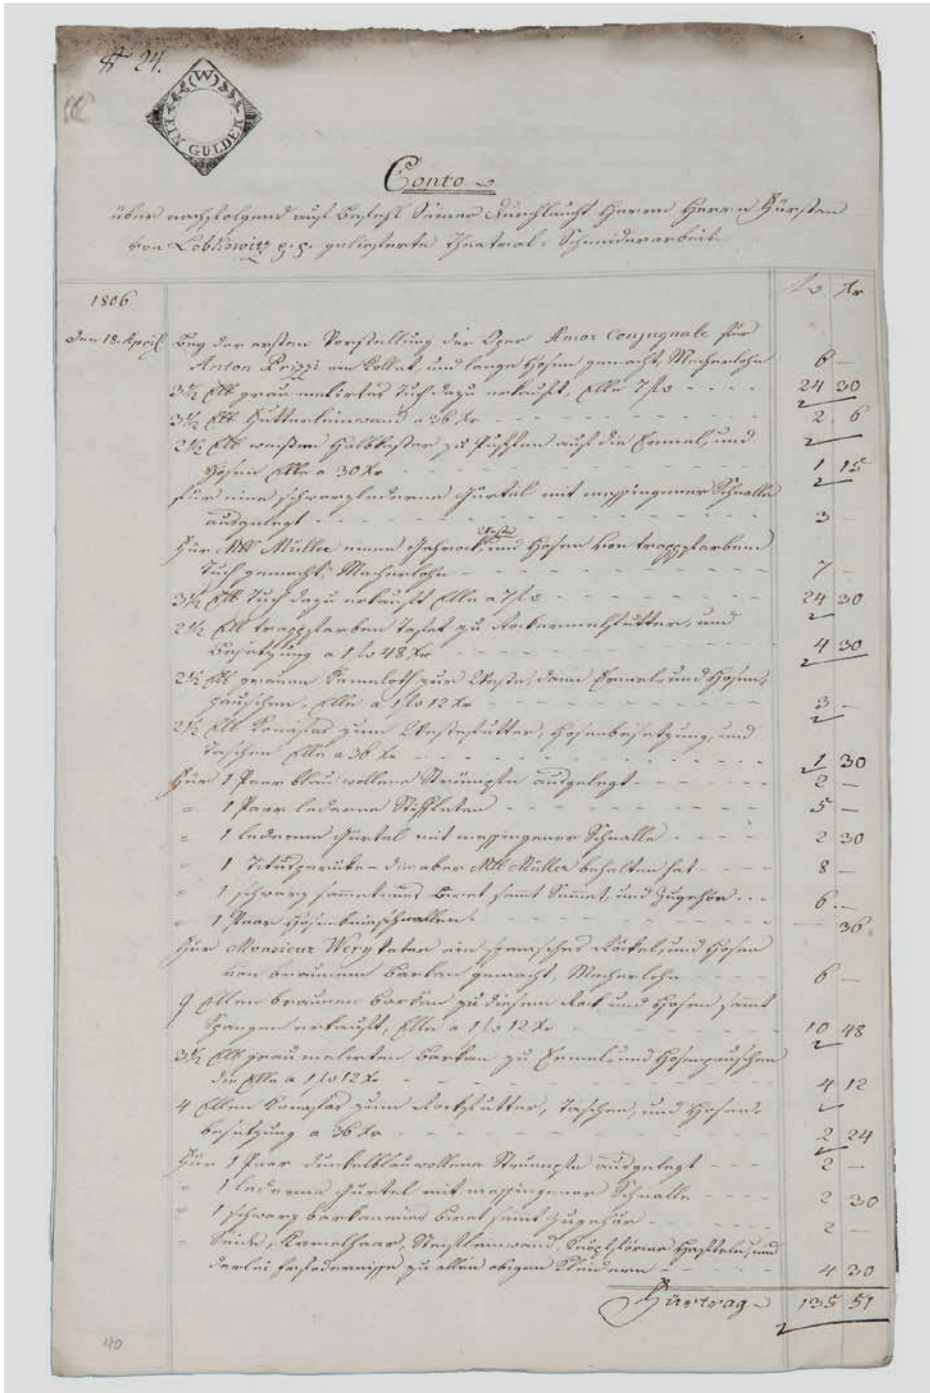 № 24.
(W)
EIN GULDEN
Conto
über nachfolgend auf Befehl Seiner Durchlaucht Herrn Herrn Fürsten
von Lobkowitz p. p. gelieferte Theatral-Schneiderarbeit
fl Xr
1806
den 18. April Bey der ersten Vorstellung der Oper Amor Conjugnale für
Anton ein Kollet, und lange Hosen gemacht, Macherlohn 6 —
3½ Ell grau melirtes Tuch dazu erkauft, Elle 7 fl 24 30
3½ Ell Futterleinwand a 36 Xr 2 6
2½ Ell weißen zu Puffen auf die Ermel, und
Hosen Elle a 30 Xr 1 15
für eine schwarzlederne Gürtel mit messingener Schnalle
ausgelegt 3 —
Für Mll Müller einen Gehrock, Weste und Hosen von trappfarben
Tuch gemacht, Macherlohn 7 —
3½ Ell Tuch dazu erkauft Elle a 7 fl 24 30
2½ Ell trappfarben Tafet zu Rockermelfutter, und
Besetzung a 1 fl 48 Xr 4 30
2½ Ell grauen Kameloth zur Weste, dann Ermel- und Hosen-
pauschen, Elle a 1 fl 12 Xr 3 —
2½ Ell zum Westefutter, Hosenbesetzung, und
Taschen Elle a 36 Xr 1 30
Für 1 Paar blau wollene Strümpfe ausgelegt 2 —
" 1 Paar lederne Stiffleten 5 —
" 1 lederne Gürtel mit messingener Schnalle 2 30
" 1 Titusperücke – die aber Mll Müller behalten hat 8 —
" 1 schwarz sammetenes Biret samt Sammt, und Zugehör 6 —
" 1 Paar Hosenknieschnallen — 36
Für Monsieur ein spanisches Röckel, und Hosen
von braunem Barkan gemacht, Macherlohn 6 —
9 Ellen braunen Barkan zu diesem Rock und Hosen sammt
Spangen erkauft, Elle a 1 fl 12 Xr 10 48
3½ Ell grau melirten Barkan zu Ermel- und Hosenpauschen
die Elle a 1 fl 12 Xr 4 12
4 Ellen zum Rockfutter, Taschen, und Hosen-
besetzung a 36 Xr 2 24
Für 1 Paar dunkelblauwollene Strümpfe ausgelegt 2 —
" 1 lederne Gürtel mit messingener Schnalle 2 30
" 1 schwarz barkanenes Biret samt Zugehör 2 —
" Seide, Kamelhaar, Steifleinwand, Knöpfförme Hafteln, und
derlei Erfordernisse zu allen obigen Kleidern 4 30
Fürtrag 135 51
40